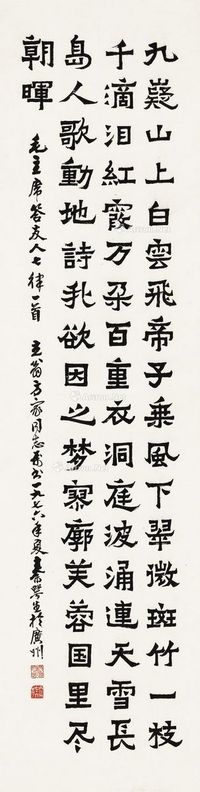 九嶷山上白雲飛帝子乘風下翠微斑竹一枝
千滴泪紅霞万朶百重衣洞庭波涌連天雪長
島人歌動地詩我欲因之梦寥廓芙蓉国里尽
朝暉
毛主席答友人七律一首 立翁方家同志属書一九七六年夏 於廣州